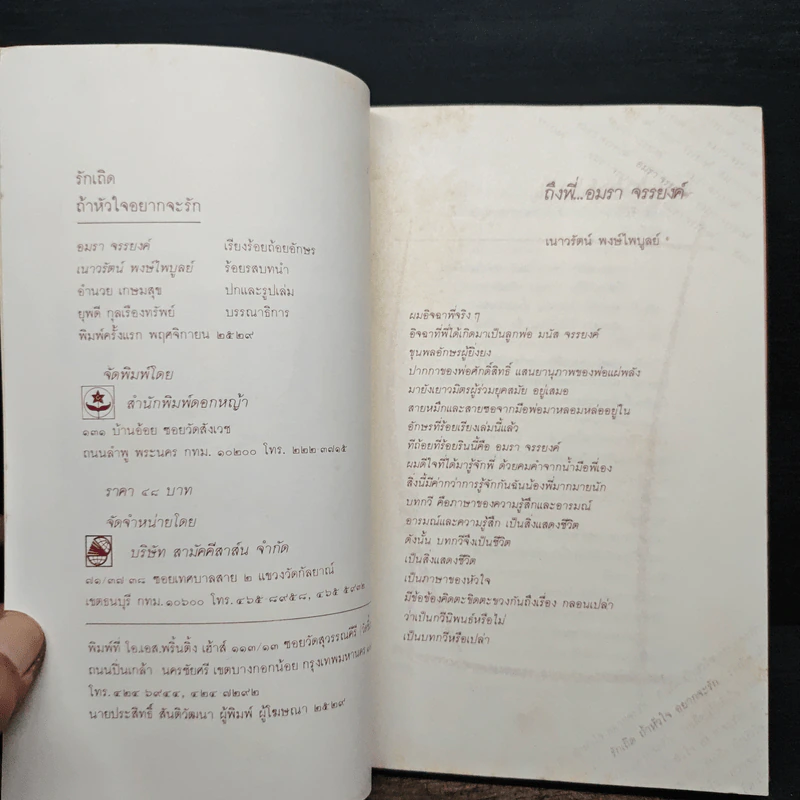 รักเถิด
ถ้าหัวใจอยากจะรัก
อมรา จรรยงค์ เรียงร้อยถ้อยอักษร
เนาวรัตน์ พงษ์ไพบูลย์ ร้อยรสบทนำ
อำนวย เกษมสุข ปกและรูปเล่ม
ยุพดี กุลเรืองทรัพย์ บรรณาธิการ
พิมพ์ครั้งแรก พฤศจิกายน ๒๕๒๙
จัดพิมพ์โดย
สำนักพิมพ์ดอกหญ้า
๑๓๑ บ้านอ้อย ซอยวัดสังเวช
ถนนลำพู พระนคร กทม. ๑๐๒๐๐ โทร. ๒๒๒ ๓๗๑๕
ราคา ๔๘ บาท
จัดจำหน่ายโดย
บริษัท สามัคคีสาส์น จำกัด
๘๑/๓๗ ๓๘ ซอยเทศบาลสาย ๒ แขวงวัดกัลยาณ์
เขตธนบุรี กทม. ๑๐๖๐๐ โทร. ๔๖๕ ๘๙๕๘,
พิมพ์ที่ โอเอส.พริ้นติ้ง เฮ้าส์ ๑๑๓/๑๓ ซอยวัดสุวรรณคีรี
ถนนปิ่นเกล้า นครชัยศรี เขตบางกอกน้อย กรุงเทพมหานคร
โทร. ๔๒๔ ๖๙๔๔, ๔๒๔ ๗๒๙๒
นายประสิทธิ์ สันติวัฒนา ผู้พิมพ์ ผู้โฆษณา ๒๕๒๙
ถึงพี่...อมรา จรรยงค์
เนาวรัตน์ พงษ์ไพบูลย์
ผมอิจฉาพี่จริง ๆ
อิจฉาที่พี่ได้เกิดมาเป็นลูกพ่อ มนัส จรรยงค์
ขุนพลอักษรผู้ยิ่งยง
ปากกาของพ่อศักดิ์สิทธิ์ แสนยานุภาพของพ่อแผ่พลัง
มายังเยาวมิตรผู้ร่วมยุคสมัย อยู่เสมอ
สายหมึกและสายซอจากมือพ่อมาหลอมหล่ออยู่ใน
อักษรที่ร้อยเรียงเล่มนี้แล้ว
ทีถ้อยที่ร้อยรินนี้คือ อมรา จรรยงค์
ผมดีใจที่ได้มารู้จักพี่ ด้วยคมคำจากน้ำมือพี่เอง
สิ่งนี้มีค่ากว่าการรู้จักกันฉันน้องพี่มากมายนัก
บทกวี คือภาษาของความรู้สึกและอารมณ์
อารมณ์และความรู้สึก เป็นสิ่งแสดงชีวิต
ดังนั้น บทกวีจึงเป็นชีวิต
เป็นสิ่งแสดงชีวิต
เป็นภาษาของหัวใจ
มีข้อข้องคิดตะขิดตะขวงกันถึงเรื่อง กลอนเปล่า
ว่าเป็นกวีนิพนธ์หรือไม่
เป็นบทกวีหรือเปล่า
รักเถิด ถ้าหัวใจ อยากจะรัก